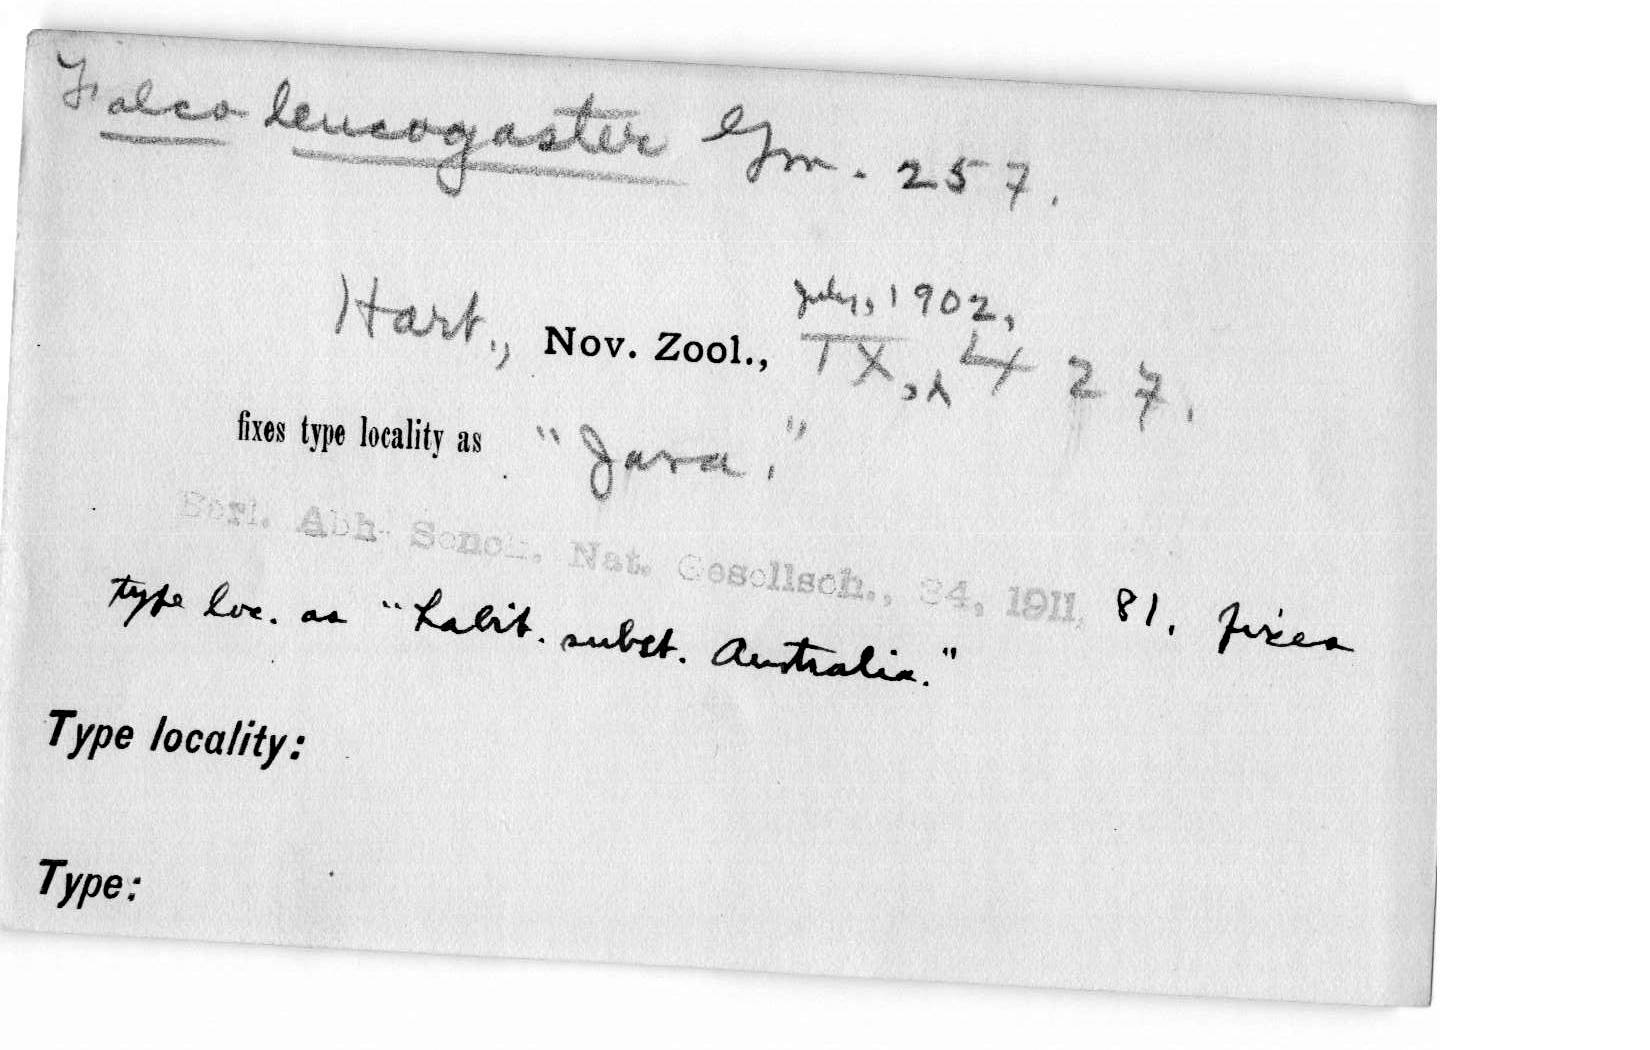 Falco leucogaster Gm. 257.
July, 1902,
Hart., Nov. Zool., IX, 427.
fixes type locality as "Java."
Berl. Abh. Senck. Nat. Gesellsch., 34, 1911, 81, fixes
type loc. as "habit. subst. Australia."
Type locality:
Type: